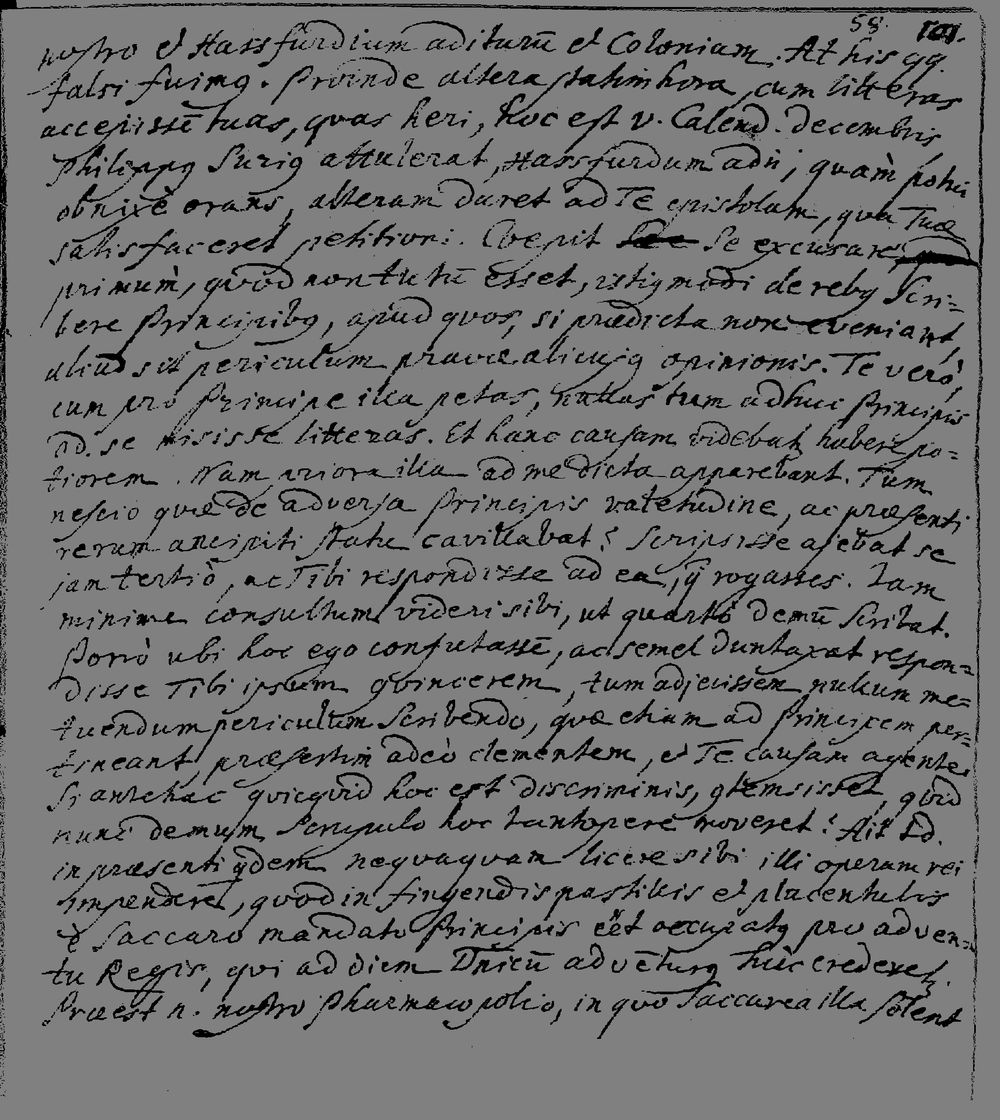 58. 101.
nostro et Hassfurdium aditurū et Coloniam. At his qq.
falsi fuimg. Proinde altera statim hora, cum litteras
accepissē tuas, quas heri, hoc est v. Calend. decembris
Philippg Surig attulerat, Hassfurdum adii, quàm potui
obnixè orans, alteram daret ad Te epistolam, qua Tuæ
satisfaceret petitioni. Coepit se excusare,
primùm, quòd non tutū esset, istigmodi de rebg Scri=
bere Principibg, apud quos, si prædicta non eveniant,
aliud sit periculum pravæ alicujg opinionis. Te verò,
cum pro Principe illa petas, nullas tum adhuc Principis
ad se misisse litteras. Et hanc causam videbat habere po=
tiorem. Nam priora illa ad me dicta apparebant. Tum
nescio quæ de adversa Principis valetudine, ac præsenti
rerum ancipiti statu cavillabat: Scripsisse ajebat se
jam tertiò, ac Tibi respondisse ad ea, q̄ rogasses. Iam
minime consultum videri sibi, ut quartò demū scribat.
Porrò ubi hoc ego confutassē, ac semel duntaxat respon=
disse Tibi ipsum gvincerem, tum adjecissem nullum me=
tuendum periculum scribendo, quæ etiam ad Principem per=
tineant, præsertim adeò clementem, et Te causam agente.
Si antehac quicquid hoc est discriminis, gtemsisset, quid
nunc demum scrupulo hoc tantopere moveret? Ait
in præsenti qdem nequaquam licere sibi illi operam rei
impendere, quòd in fingendis pastillis et placentulis
è Saccaro mandato Principis eēt occupatg pro adven=
tu Regis, qui ad diem Dnicū advēturg hùc crederet.
Præest n. nostro Pharmacopolio, in quo Saccarea illa solent